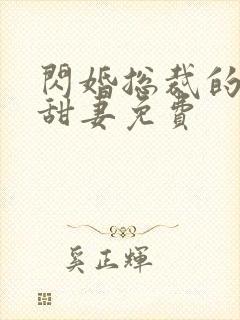 閃婚總裁的
甜妻免費
奚正輝